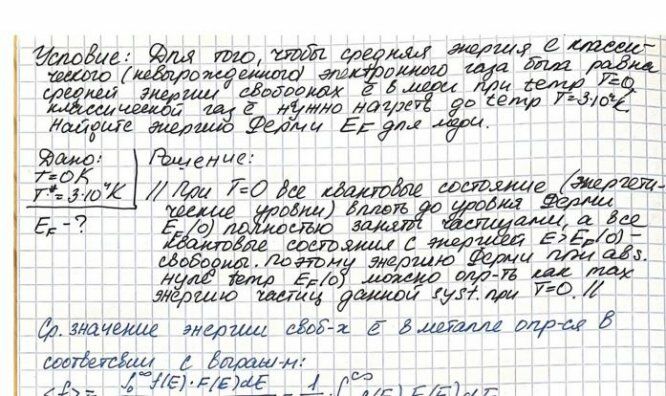 Условие: Для того, чтобы средняя энергия e класси-
ческого (невырожденного) электронного газа была равна
средней энергии свободных ē в меди при temp T=0,
классический газ ē нужно нагреть до temp T=3·10⁴K.
Найдите энергию Ферми E_F для меди.
Дано:
T=0K
T*=3·10⁴K
E_F -?
Решение:
// При T=0 все квантовые состояние (энергети-
ческие уровни) вплоть до уровня Ферми
E_F(0) полностью заняты частицами, а все
квантовые состояния с энергией E>E_F(0)-
свободны. Поэтому энергию Ферми при abs.
нуле temp E_F(0) можно опр-ть как max
энергию частиц данной syst. при T=0. //
Ср. значение энергии своб-х ē в металле опр-ся в
соответсвии с выраж-м: